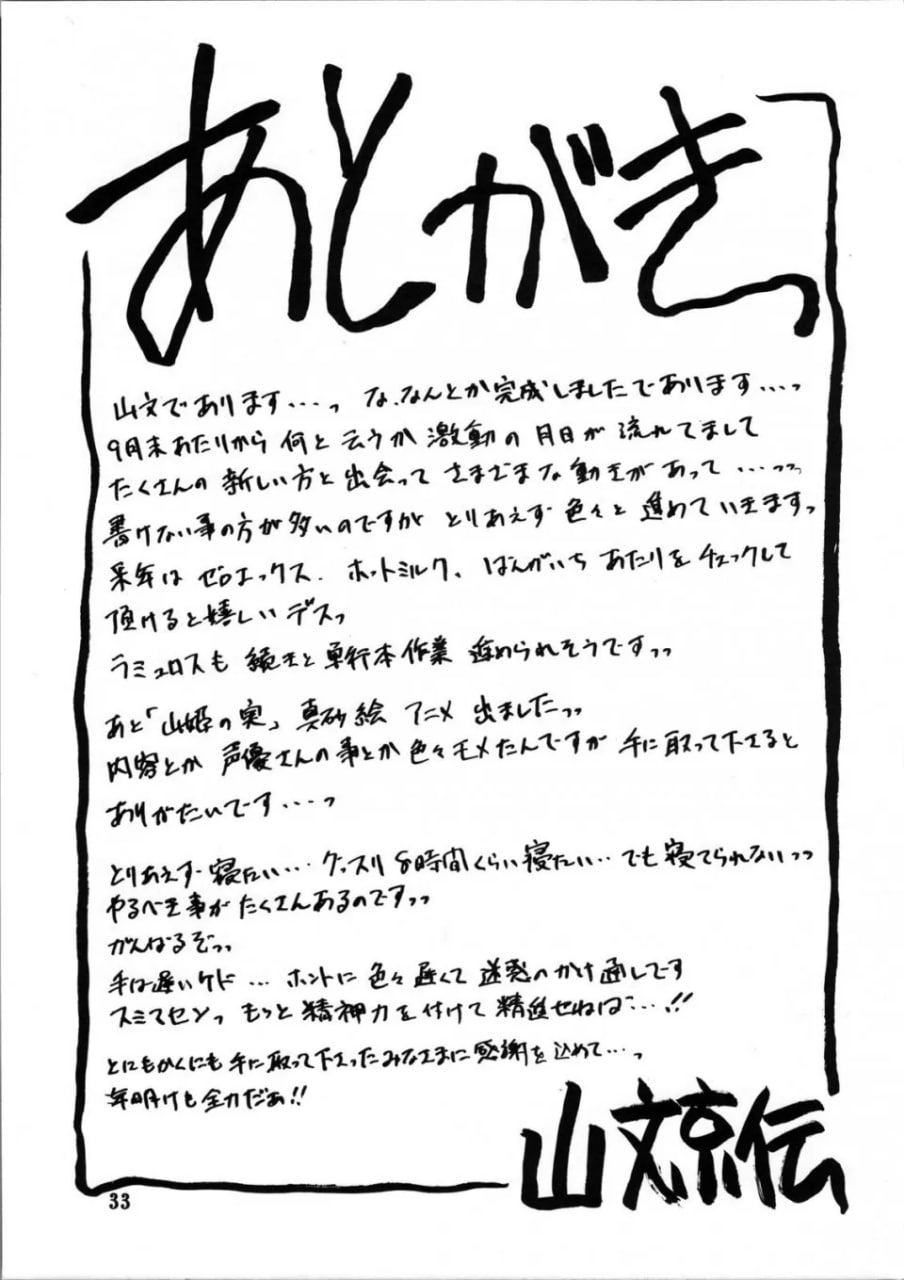 あとがきっ
山文であります…っ な、なんとか完成しましたであります…っ
9月末あたりから 何と云うか 激動の月日が 流れてまして
たくさんの 新しい方と出会って さまざまな動きがあって …っっ
書けない事の方が多いのですが とりあえず 色々と 進めていきます。
来年は ゼロエックス、ホットミルク、ばんがいち あたりを チェックして
頂けると嬉しい デスっ
ラミュロスも 続きと 単行本作業 進められそうですっっ
あと「山姫の実」真砂絵 アニメ 出ましたっっ
内容とか 声優さんの事とか 色々モメたんですが 手に取って下さると
ありがたいです…っ
とりあえず 寝たい… グッスリ 8時間くらい寝たい… でも 寝てられないっっ
やるべき事が たくさんあるのですっっ
がんばるぞっっ
手は遅いケド … ホントに 色々 遅くて 迷惑のかけ通しです
スミマセンっ もっと 精神力を付けて 精進せねば…!!
とにもかくにも 手に取って下さったみなさまに 感謝を込めて…っ
年明けも全力だぁ!!
山文京伝
33